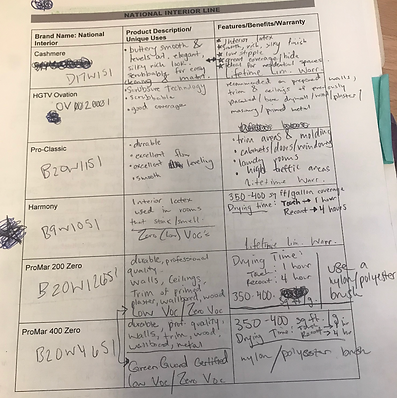 NATIONAL INTERIOR LINE
Brand Name: National Interior
Product Description/ Unique Uses
Features/Benefits/Warranty
Cashmere
D17W151
• buttery smooth &
silky rich look.
scrubbable for easy
Interior latex
low stipple
great coverage/hide
ideal for residential spaces
lifetime lim. Warr.
HGTV Ovation
• Scrubbable
• good coverage
recommended on primed walls,
trim & ceilings of previously
masonry/primed metal
Pro-Classic
B20W151
• durable
• excellent flow
• excellent leveling
• smooth
• trim areas & molding
• cabinets/doors/windows
• laundry rooms
• high traffic areas
lifetime Warr.
Harmony
B9W1051
Interior latex
used in rooms
that stink/smell.
Zero (low) VOC's
350-400 sq ft/gallon coverage
Drying time: Touch → 1 hour
Recoat → 4 hours
lifetime lim Warr.
ProMar 200 Zero
B20W12651
durable, professional
quality.
Walls, Ceilings,
Trim of primed
plaster, wallboard, wood
Low VOC / Zero VOC
Drying Time:
Touch: 1 hour
Recoat: 4 hour
350-400
use a
nylon/polyester
brush
ProMar 400 Zero
B20W4651
durable, prof. quality.
walls, trim, wood,
wallboard, metal
GreenGuard Certified
Low VOC / Zero VOC
350-400 sq ft.
Drying Time:
nylon/polyester brush